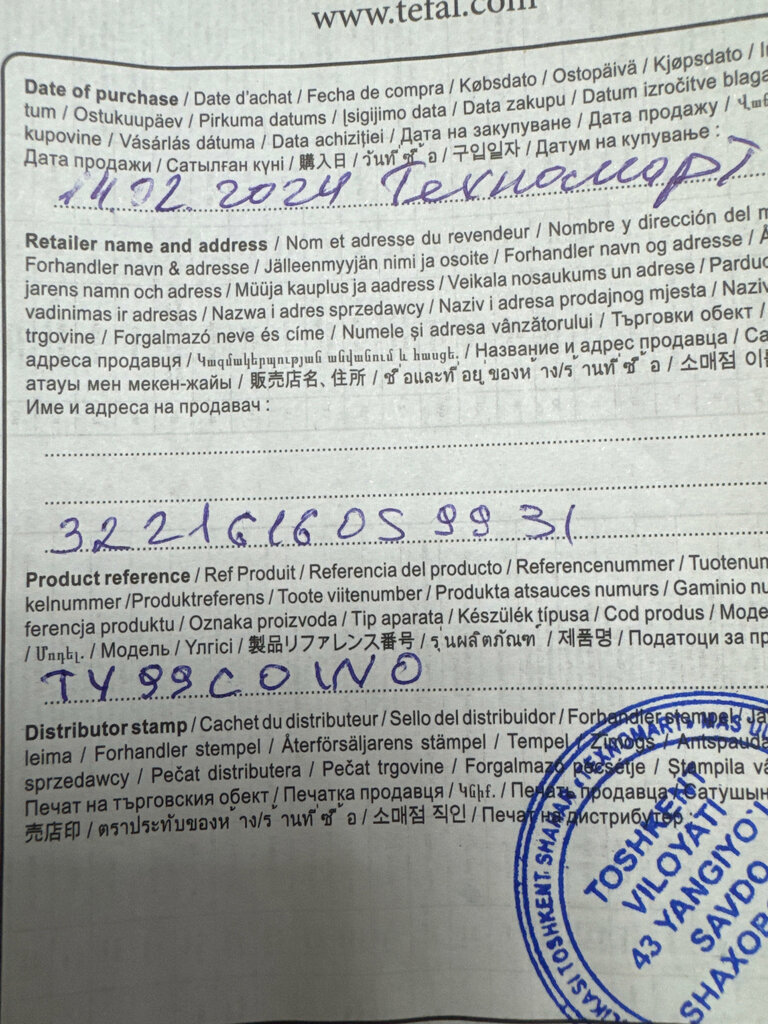 www.tefal.com
Date of purchase / Date d'achat / Fecha de compra / Købsdato / Ostopäivä / Kjøpsdato /
tum / Ostukuupäev / Pirkuma datums / Įsigijimo data / Data zakupu / Datum izročitve blaga
kupovine / Vásárlás dátuma / Data achiziției / Дата на закупуване / Дата продажу /
Дата продажи / Сатылған күні / 購入日 / วันที่ซื้อ / 구입일자 / Датум на купување :
14.02.2024 Техномарт
Retailer name and address / Nom et adresse du revendeur / Nombre y dirección del
Forhandler navn & adresse / Jälleenmyyjän nimi ja osoite / Forhandler navn og adresse /
jarens namn och adress / Müüja kauplus ja aadress / Veikala nosaukums un adrese / Parduo
vadinimas ir adresas / Nazwa i adres sprzedawcy / Naziv i adresa prodajnog mjesta / Naziv
trgovine / Forgalmazó neve és címe / Numele și adresa vânzătorului / Търговки обект /
адреса продавця / Կազմակերպության անվանում և հասցե. / Название и адрес продавца /
атауы мен мекен-жайы / 販売店名、住所 / ชื่อและที่อยู่ของห้าง/ร้านที่ซื้อ / 소매점
Име и адреса на продавач :
3221616059931
Product reference / Ref Produit / Referencia del producto / Referencenummer / Tuotenum
kelnummer /Produktreferens / Toote viitenumber / Produkta atsauces numurs / Gaminio
ferencja produktu / Oznaka proizvoda / Tip aparata / Készülék típusa / Cod produs / Моде
/ Մոդել. / Модель / Үлгісі / 製品リファレンス番号 / รุ่นผลิตภัณฑ์ / 제품명 / Податоци за
TY99C0WO
Distributor stamp / Cachet du distributeur / Sello del distribuidor / Forhandler stempel /
leima / Forhandler stempel / Återförsäljarens stämpel / Tempel / Zīmogs / Antspaudas
sprzedawcy / Pečat distributera / Pečat trgovine / Forgalmazó pecsétje / Ștampila
Печат на търговския обект / Печатка продавця / Կնիք. / Печать продавца / Сатушын
売店印 / ตราประทับของห้าง/ร้านที่ซื้อ / 소매점 직인 / Печат на дистрибутер :
TOSHKENT SHAHAR «TEXNOMART» MAS'UL
TOSHKENT
VILOYATI
43 YANGIYO'L
SAVDO
SHAXOB